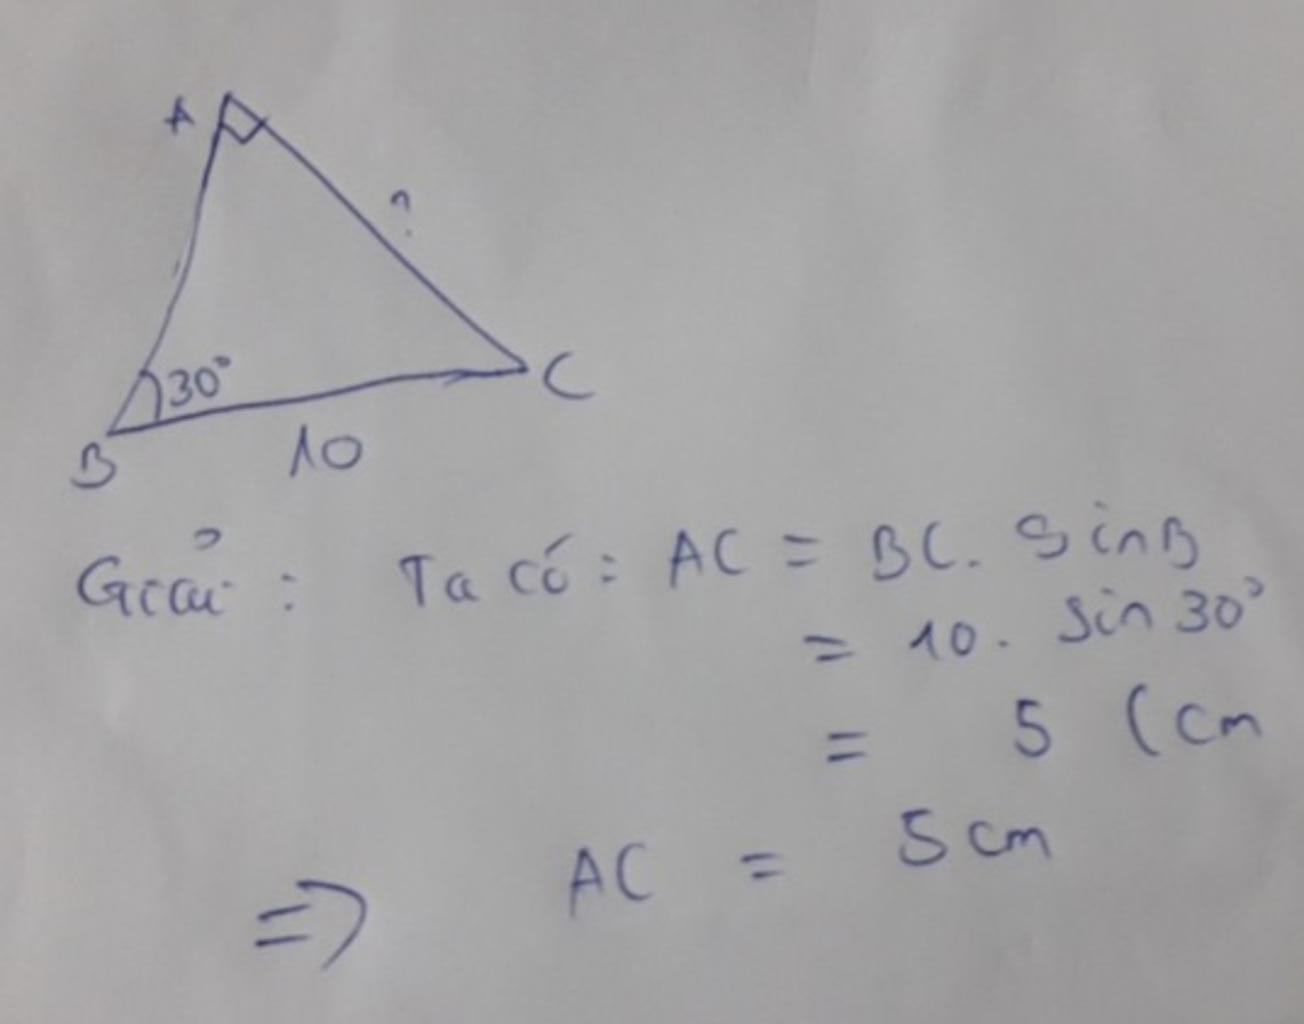 A
?
30°
C
B
10
Giải: Ta có: AC = BC. SinB
= 10. Sin 30°
= 5 (cm
=> AC = 5cm